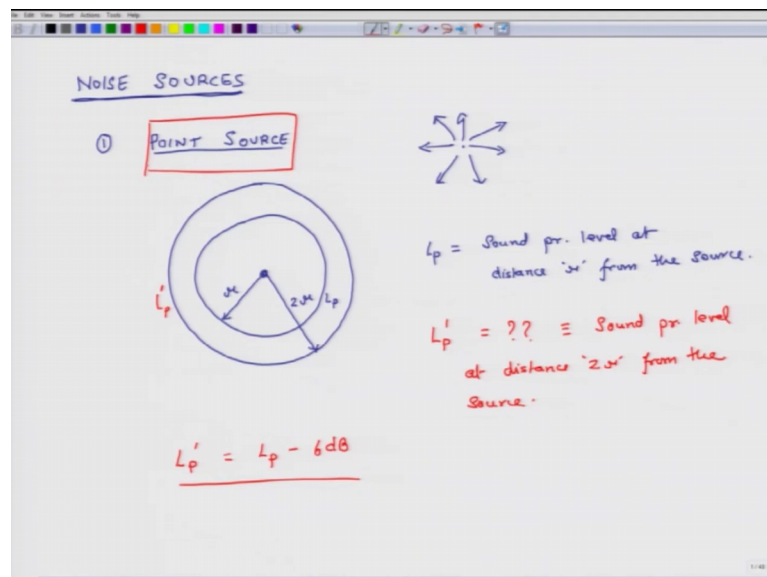 File Edit View Insert Actions Tools Help
NOISE SOURCES
① POINT SOURCE
r
2r
Lp
Lp'
Lp = Sound pr. level at
distance 'r' from the source.
Lp' = ?? ≡ Sound pr level
at distance '2r' from the
source.
Lp' = Lp - 6dB